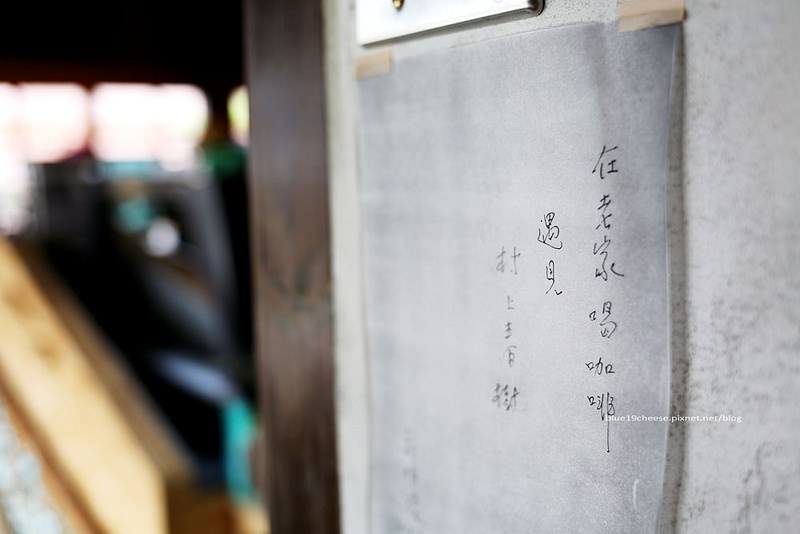 在老家喝咖啡
遇見
村上春樹
blue19cheese.pixnet.net/blog